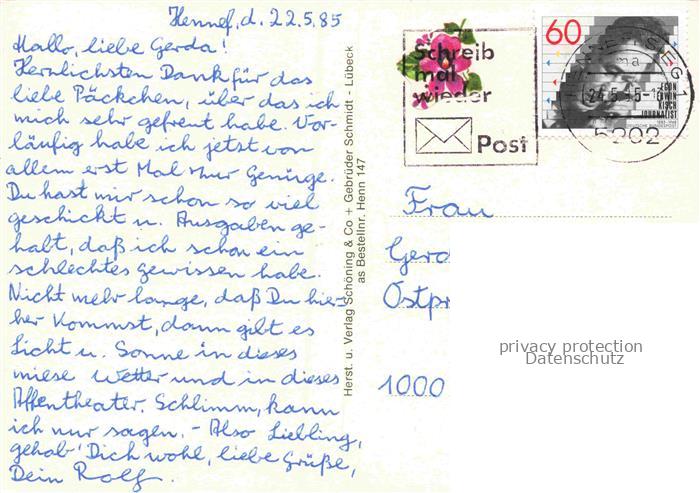 Hennef, d. 22.5.85
Hallo, liebe Gerda!
Herzlichsten Dank für das
liebe Päckchen, über das ich
mich sehr gefreut habe. Vor-
läufig habe ich jetzt von
allem erst Mal zur Genüge.
Du hast mir schon so viel
geschickt u. Ausgaben ge-
habt, daß ich schon ein
schlechtes Gewissen habe.
Nicht mehr lange, daß Du hie-
her kommst, dann gibt es
Licht u. Sonne in dieses
miese Wetter und in dieses
Affentheater. Schlimm, kann
ich nur sagen. - Also Liebling,
gehab' Dich wohl, liebe Grüße,
Dein Rolf.
Herst. u. Verlag Schöning & Co + Gebrüder Schmidt - Lübeck
as Bestellnr. Henn 147
Schreib
mal
wieder
Post
60
EGON
ERWIN
KISCH
JOURNALIST
5202
Frau
Gerd
Ostpr
1000
privacy protection
Datenschutz